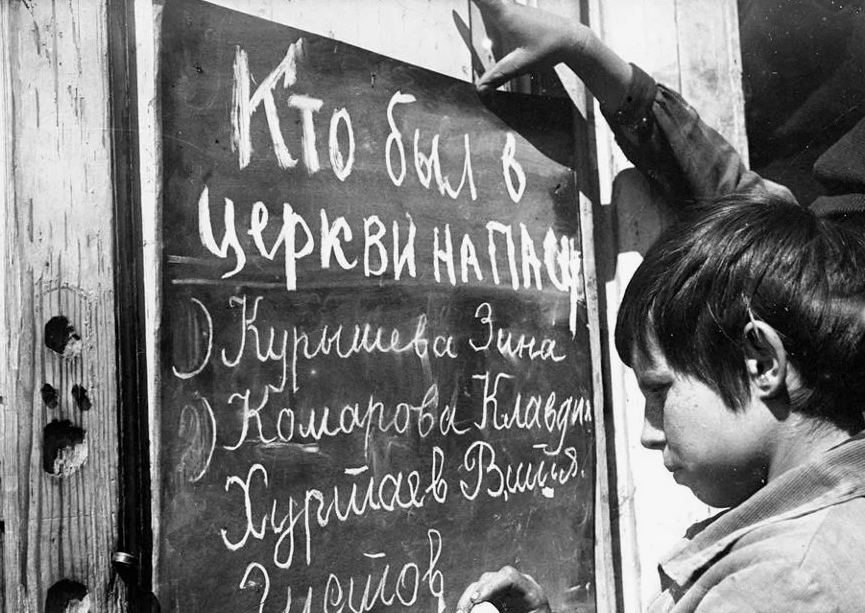 Кто был в
церкви на пасц
) Курышева Зина
) Комарова Клавдия
Хуртаев Витя.
Чистов